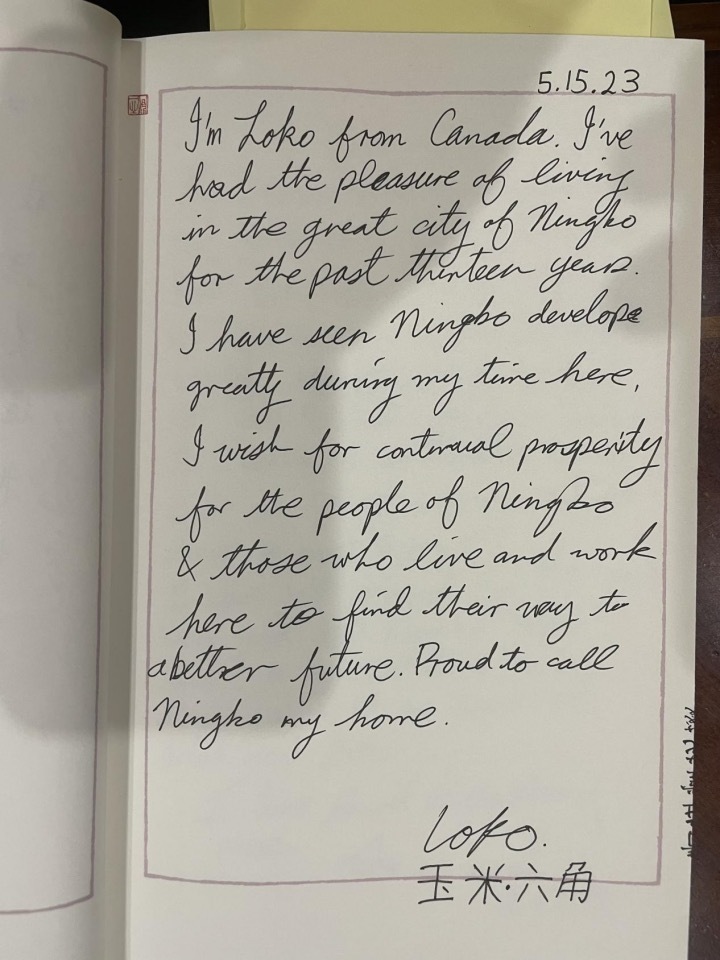 5.15.23
I'm Loko from Canada. I've
had the pleasure of living
in the great city of Ningbo
for the past thirteen years.
I have seen Ningbo develope
greatly during my time here,
I wish for continual prosperity
for the people of Ningbo
& those who live and work
here to find their way to
a better future. Proud to call
Ningbo my home.
Loko.
玉米·六角